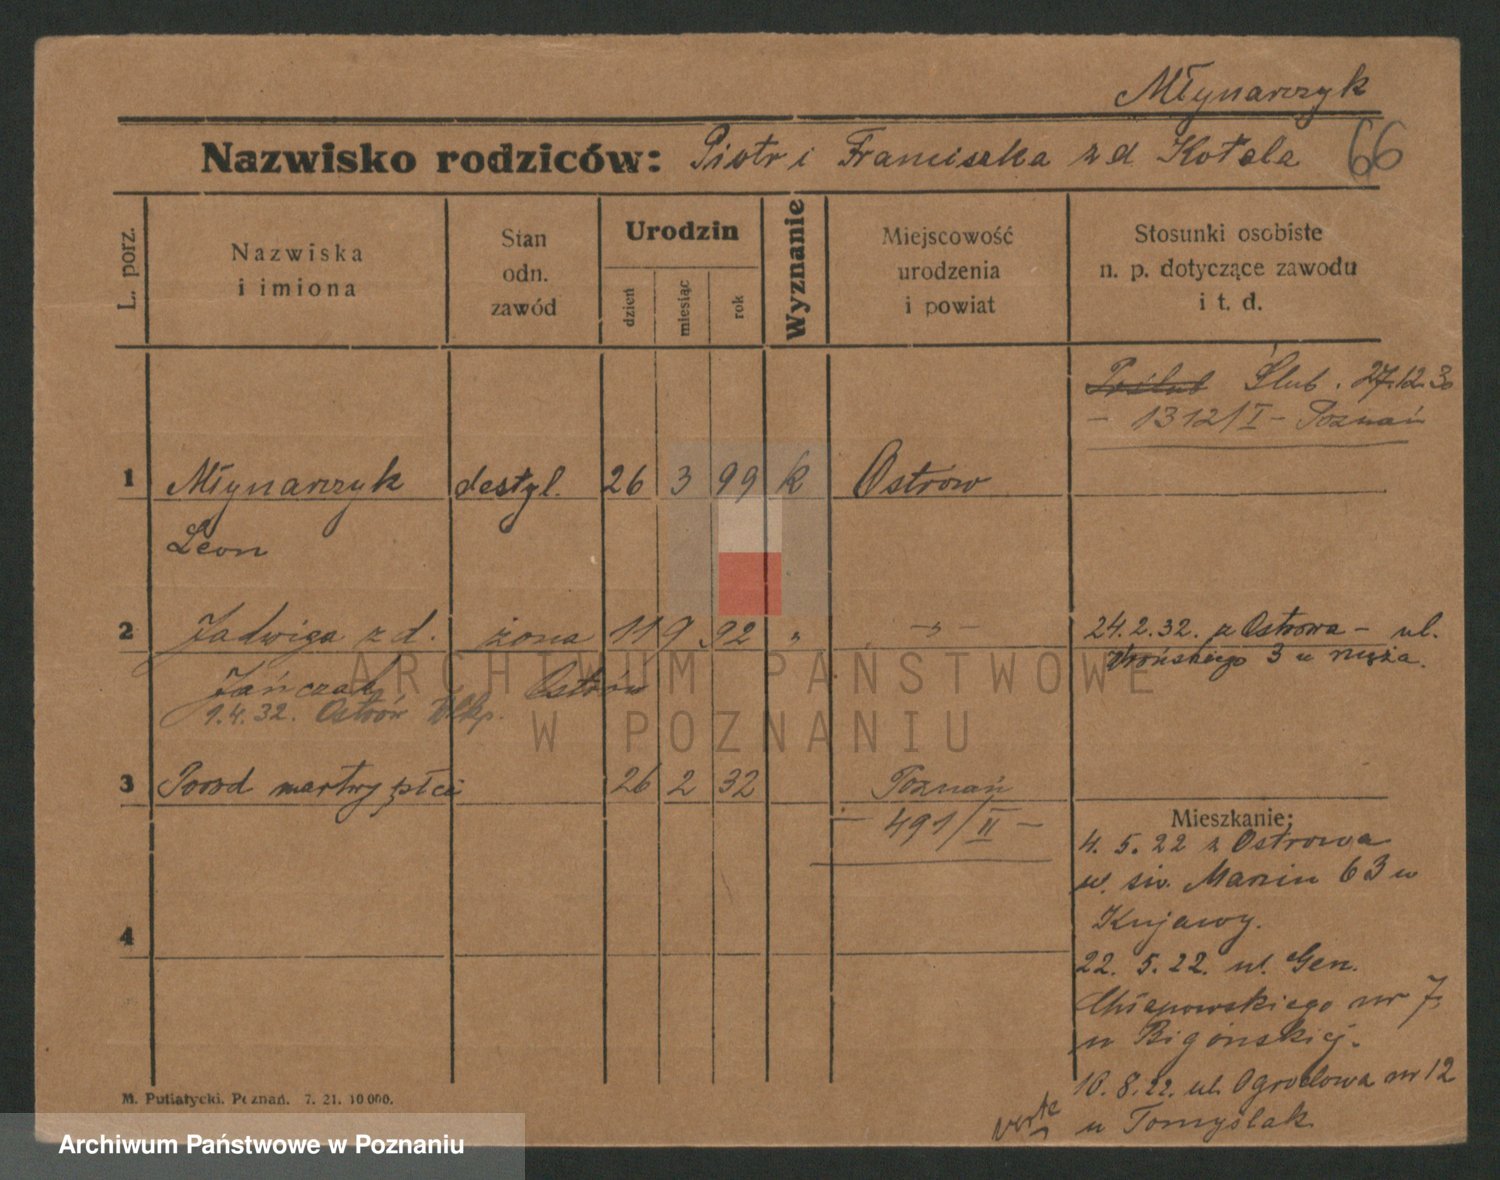 Młynarczyk
Nazwisko rodziców: Piotr i Franciszka z d Kotela
66
L. porz.
Nazwiska
i imiona
Stan
odn.
zawód
Urodzin
dzień
miesiąc
rok
Wyznanie
Miejscowość
urodzenia
i powiat
Stosunki osobiste
n. p. dotyczące zawodu
i t. d.
Ślub. 27.12.30
- 1312/I - Poznań
1 Młynarczyk destyl. 26 3 99 k Ostrów
Leon
2 Jadwiga z d. żona 11 9. 92 „ - „ -
24.2.32. z Ostrowa - ul.
3 u męża.
Jańczak Ostrów
1.4.32. Ostrów Wlkp.
3 Poród martwy płci 26 2 32 Poznań
- 491/II -
Mieszkanie:
4. 5. 22 z Ostrowa
św. Marcin 63 u
Kujawy.
22. 5. 22. ul. Gen.
Chłapowskiego nr 7
u Bigońskiej.
10. 8. 22. ul. Ogrodowa nr 12
u Tomyślak
verte
4
M. Putiatycki. Poznań. 7. 21. 10 000.
ARCHIWUM PAŃSTWOWE
W POZNANIU
Archiwum Państwowe w Poznaniu